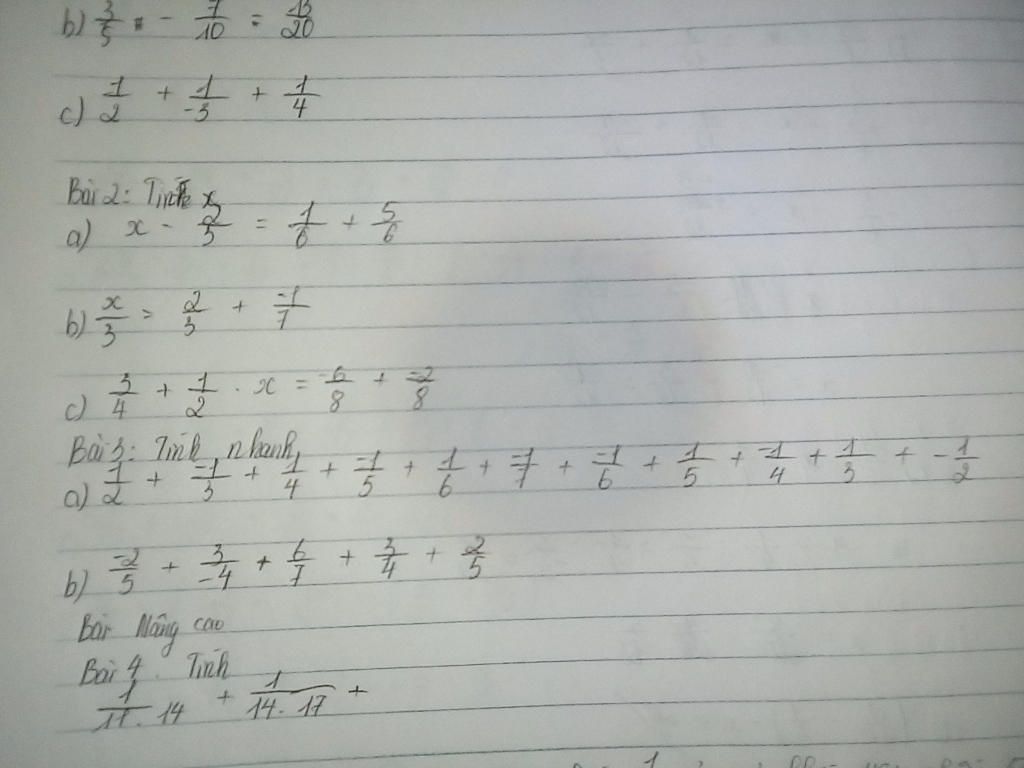 b) 3/5 - 7/10 = 13/20
c) 1/2 + 1/-3 + 1/4
Bài 2: Tính x
a) x - 2/3 = 1/6 + 5/6
b) x/3 = 2/3 + -1/7
c) 3/4 + 1/2 . x = 6/8 + -2/8
Bài 3: Tính nhanh
a) 1/2 + -1/3 + 1/4 + -1/5 + 1/6 + -1/7 + -1/6 + 1/5 + -1/4 + 1/3 + -1/2
b) -2/5 + 3/-4 + 6/7 + 3/4 + 2/5
Bài Nâng cao
Bài 4. Tính
1/11.14 + 1/14.17 +